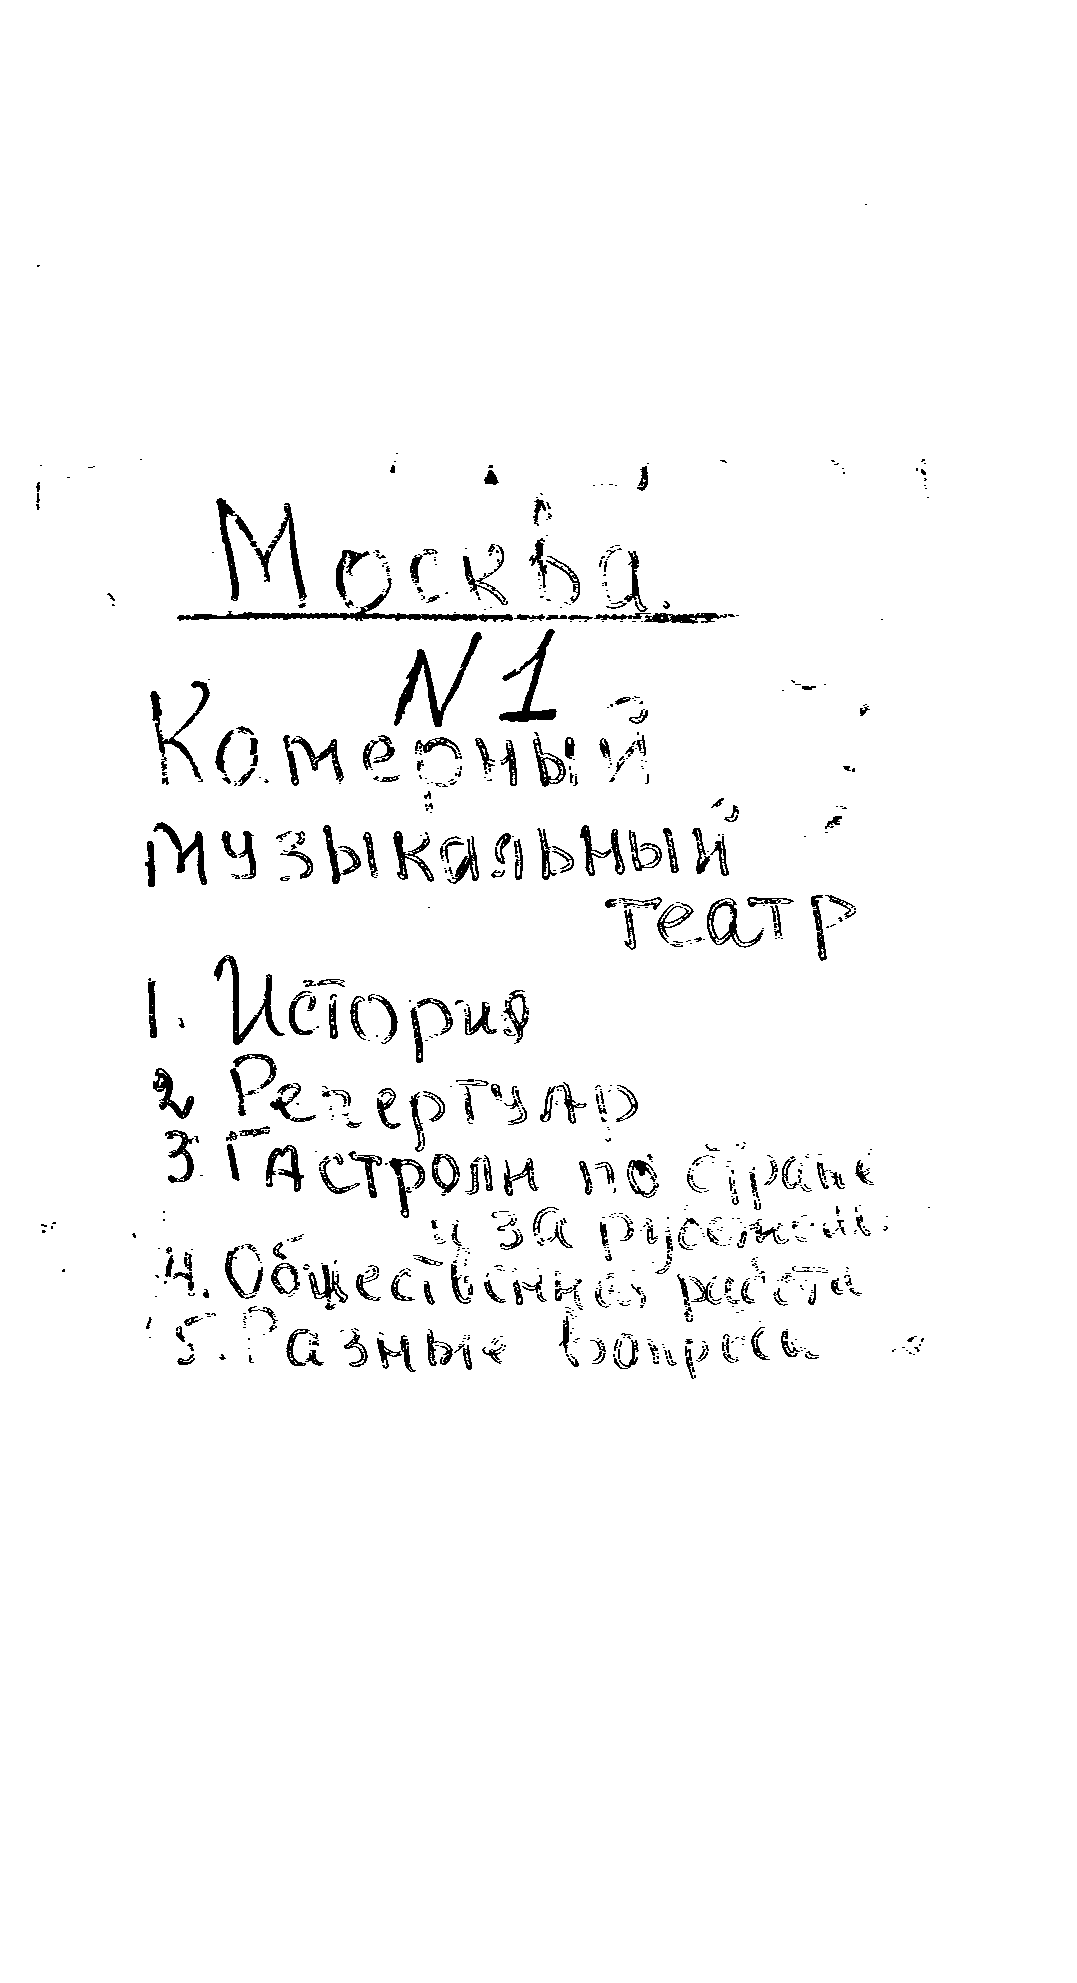 Москва.
N 1
Камерный
музыкальный
театр
1. История
2 Репертуар
3. Гастроли по стране
и за рубежом.
4. Общественная работа
5. Разные вопросы